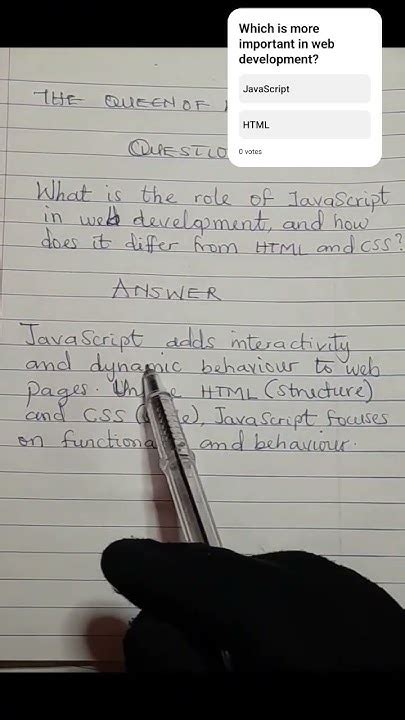 Which is more
important in web
development?
JavaScript
HTML
0 votes
THE QUEEN OF
What is the role of JavaScript
in web development, and how
does it differ from HTML and CSS?
ANSWER
JavaScript adds interactivity
and dynamic behaviour to web
pages. HTML (structure)
and CSS JavaScript focuses
on and behaviour.